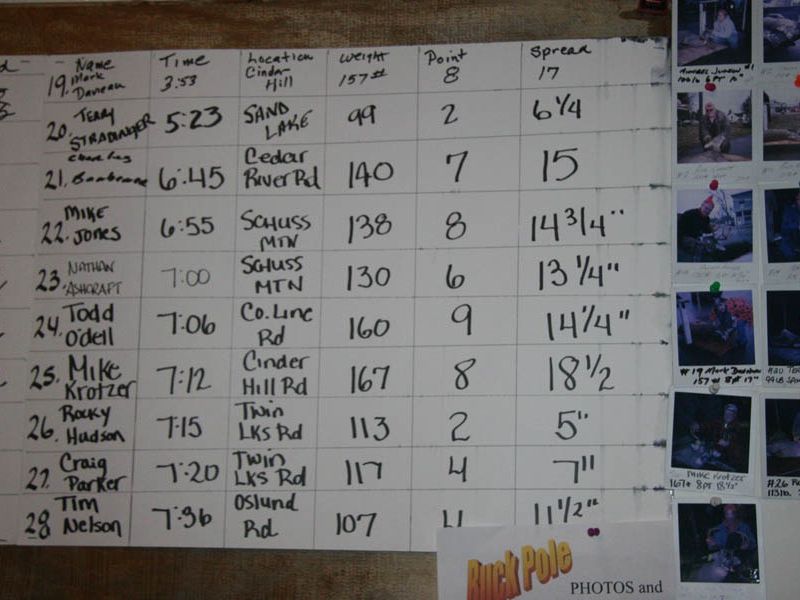 Name Time Location Weight Point Spread
19. Mark 3:53 Cinder Hill 157# 8 17
20. TERRY STRADINGER 5:23 SAND LAKE 99 2 6 1/4
21. 6:45 Cedar River Rd 140 7 15
22. MIKE Jones 6:55 SCHUSS MTN 138 8 14 3/4"
23 NATHAN ASHCRAFT 7:00 SCHUSS MTN 130 6 13 1/4"
24. Todd O'dell 7:06 Co. Line Rd 160 9 14 1/4"
25. Mike Krotzer 7:12 Cinder Hill Rd 167 8 18 1/2
26. Rocky Hudson 7:15 Twin LKS Rd 113 2 5"
27. Craig Parker 7:20 Twin LKS Rd 117 4 7"
28 Tim Nelson 7:36 Oslund Rd 107 4 11 1/2"
Buck Pole
PHOTOS and
#19 Mark
157# 8pt 17"
Mike Krotzer
167# 8pt 18 1/2"
#26
113lb.